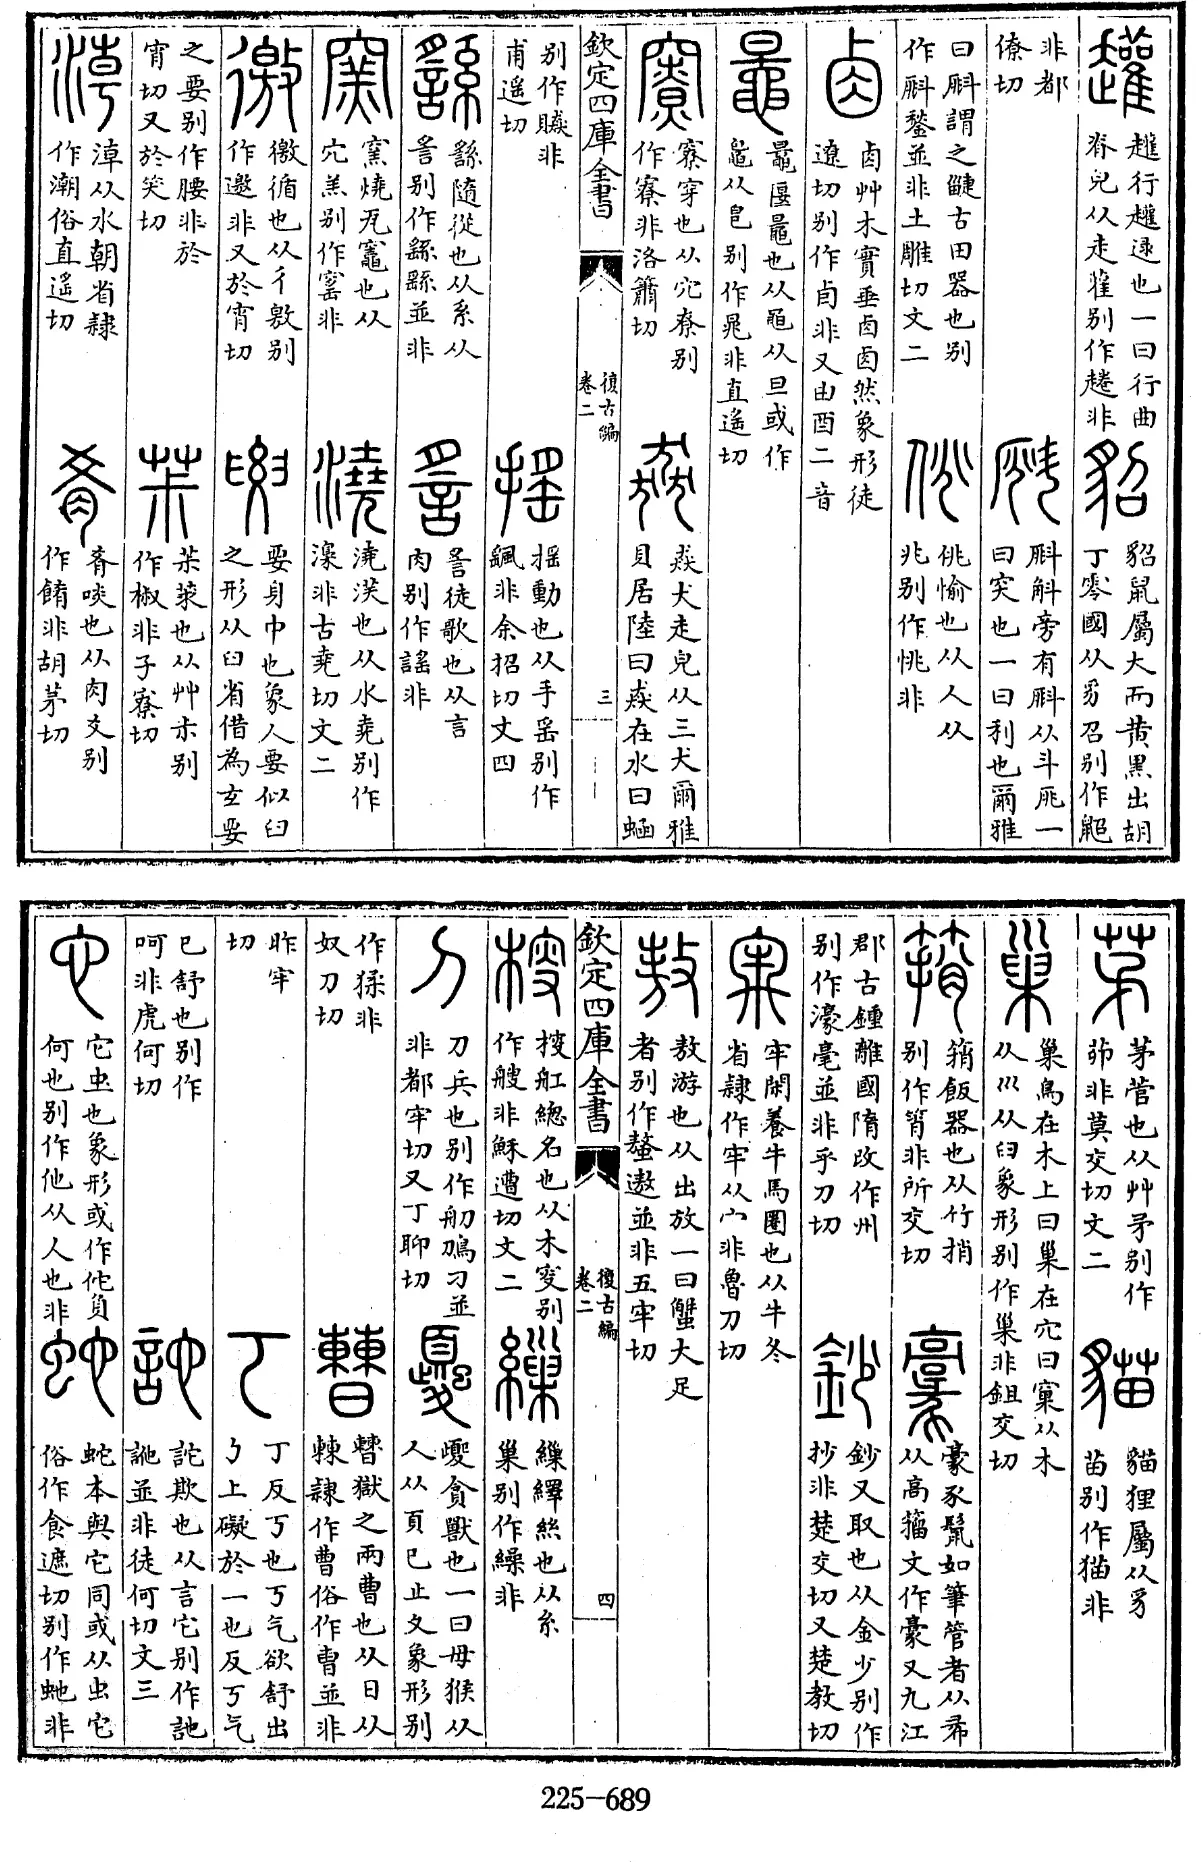 𧾯
𧾯行𧾯逯也一曰行曲
脊皃从走雚別作踡非
貂
貂鼠屬大而黄黒出胡
丁零國从豸召別作鼦
非都
僚切
𣂁
𣂁斛旁有𣂁从斗𠩺一
曰突也一曰利也爾雅
曰𣂁謂之疀古田器也別
作𣂁鍫並非土雕切文二
佻
佻愉也从人从
兆別作恌非
卤
卤艸木實垂卤卤然象形徒
遼切別作卣非又由酉二音
鼂
鼂匽鼂也从黽从旦或作
鼂从皀別作晁非直遥切
寮
寮穿也从穴尞別
作寮非洛簫切
猋
猋犬走皃从三犬爾雅
貝居陸曰猋在水曰蜬
欽定四庫全書
復古編
卷二
三
別作贆非
甫遥切
搖
搖動也从手䍃別作
飖非余招切文四
䌛
䌛隨從也从系从
䚻別作繇繇並非
䚻
䚻徒歌也从言
肉別作謠非
窯
窯燒瓦竈也从
穴羔別作窰非
澆
澆渶也从水堯別作
澡非古堯切文二
徼
徼循也从彳敫別
作邀非又於宵切
要
要身中也象人要似臼
之形从臼省借為玄要
之要別作腰非於
宵切又於笑切
茮
茮菉也从艸尗別
作椒非子寮切
淖
淖从水朝省隸
作潮俗直遥切
肴
肴啖也从肉爻別
作餚非胡茅切
茅
茅菅也从艸矛別作
茆非莫交切文二
貓
貓狸屬从豸
苗別作猫非
巢
巢鳥在木上曰巢在穴曰窠从木
从巛从臼象形別作巢非鉏交切
䈾
䈾飯器也从竹捎
別作筲非所交切
豪
豪豕鬛如筆管者从㣇
从高籒文作豪又九江
郡古鍾離國隋改作州
別作濠毫並非乎刀切
鈔
鈔又取也从金少別作
抄非楚交切又楚教切
牢
牢閑養牛馬圈也从牛冬
省隸作牢从宀非魯刀切
敖
敖游也从出放一曰蟹大足
者別作螯遨並非五牢切
欽定四庫全書
復古編
卷二
四
㮴
㮴舡總名也从木叜別
作艘非穌遭切文二
繅
繅繹絲也从糸
巢別作繰非
刀
刀兵也別作舠鳭刁並
非都牢切又丁聊切
夒
夒貪獸也一曰母猴从
人从頁巳止夊象形別
作猱非
奴刀切
𣍘
𣍘獄之兩曹也从日从
㯥隸作曹俗作曺並非
昨牢
切
丁
丁反丂也丂气欲舒出
㇉上礙於一也反丂气
已舒也別作
呵非虎何切
詑
詑欺也从言它別作訑
詫並非徒何切文三
它
它虫也象形或作佗負
何也別作他从人也非
蛇
蛇本與它同或从虫它
俗作食遮切別作虵非
225-689